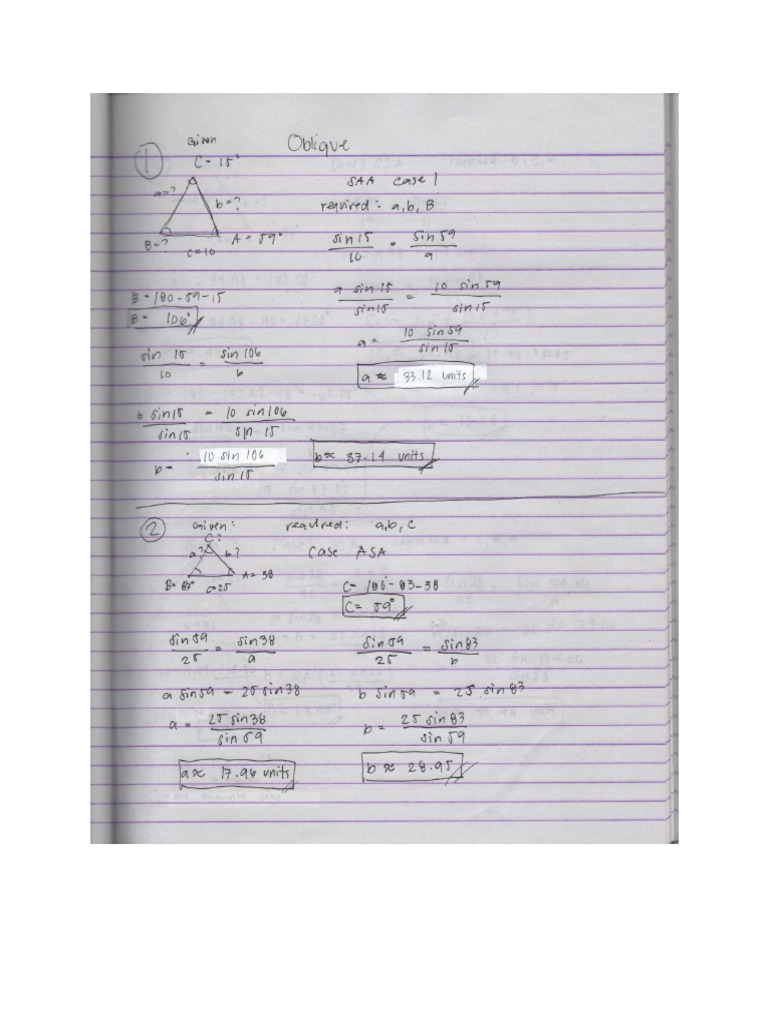 Given
Oblique
1
C = 15°
SAA case 1
a = ?
b = ?
required: a, b, B
B = ?
A = 59°
c = 10
sin 15 / 10 = sin 59 / a
B = 180 - 59 - 15
B = 106°
a sin 15 / sin 15 = 10 sin 59 / sin 15
a = 10 sin 59 / sin 15
sin 15 / 10 = sin 106 / b
a ≈ 33.12 units
b sin 15 / sin 15 = 10 sin 106 / sin 15
b = 10 sin 106 / sin 15
b ≈ 37.14 units
2
Given:
required: a, b, C
C?
a?
b?
case ASA
B = 83°
c = 25
A = 38
C = 180 - 83 - 38
C = 59°
sin 59 / 25 = sin 38 / a
sin 59 / 25 = sin 83 / b
a sin 59 = 25 sin 38
b sin 59 = 25 sin 83
a = 25 sin 38 / sin 59
b = 25 sin 83 / sin 59
a ≈ 17.96 units
b ≈ 28.95